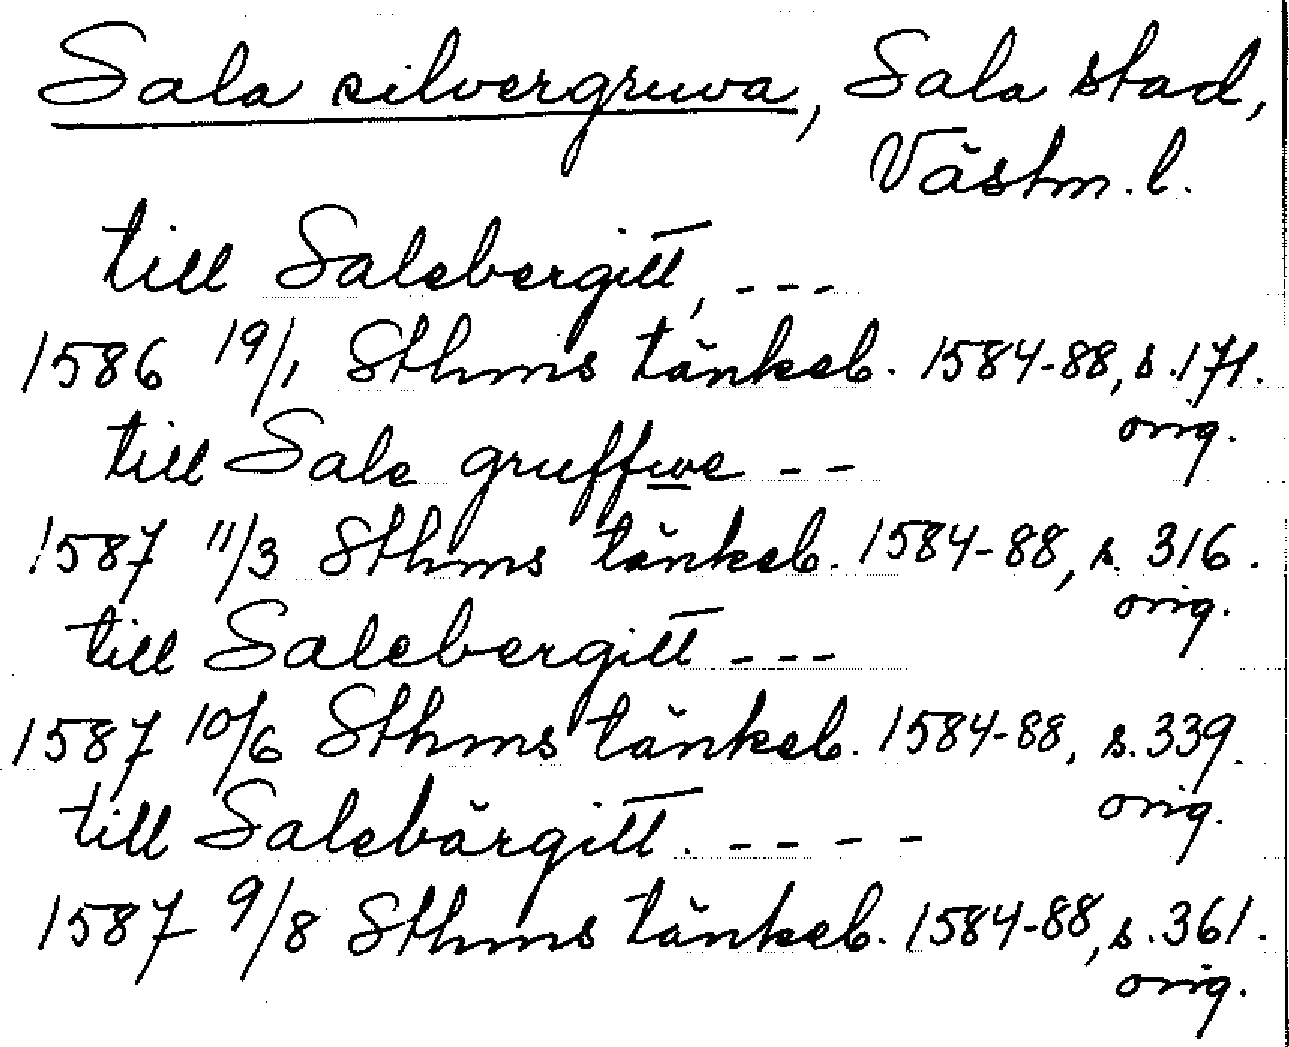 Sala silvergruva, Sala stad,
Västm. l.
till Salebergitt, ---
1586 19/1 Sthms tänkeb. 1584-88, s. 171.
orig.
till Sale gruffwe - -
1587 11/3 Sthms tänkeb. 1584-88, s. 316.
orig.
till Salebergitt ---
1587 10/6 Sthms tänkeb. 1584-88, s. 339.
orig.
till Salebärgitt. - - - -
1587 9/8 Sthms tänkeb. 1584-88, s. 361.
orig.